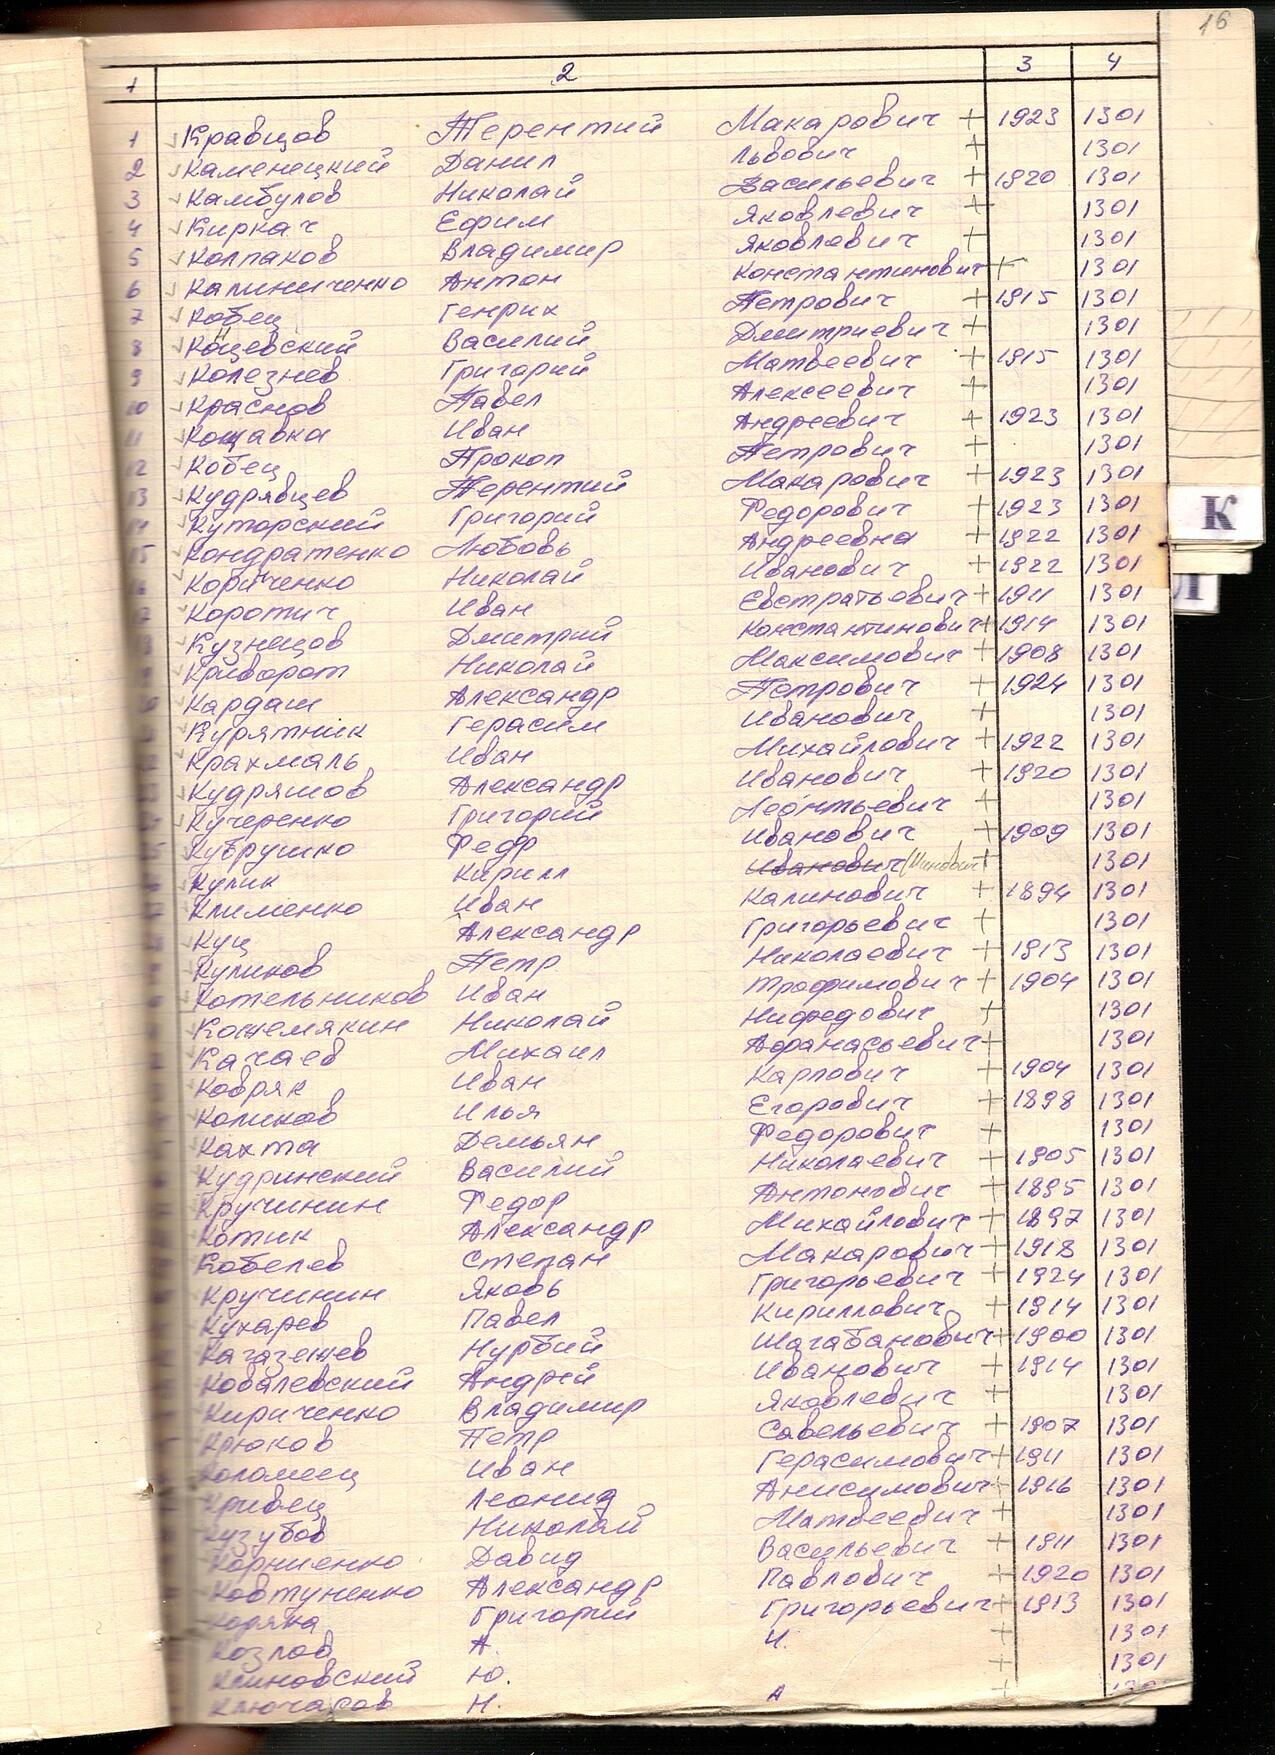 16
1 2 3 4
1 Кравцов Терентий Макарович + 1923 1301
2 Каменецкий Данил Львович + 1301
3 Камбулов Николай Васильевич + 1920 1301
4 Киркач Ефим Яковлевич + 1301
5 Колпаков Владимир Яковлевич + 1301
6 Калиниченко Антон Константинович + 1301
7 Кобец Генрих Петрович + 1915 1301
8 Коцевский Василий Дмитриевич + 1301
9 Колезнев Григорий Матвеевич + 1915 1301
10 Краснов Павел Алексеевич + 1301
11 Кощавка Иван Андреевич + 1923 1301
12 Кобец Прокоп Петрович + 1301
13 Кудрявцев Терентий Макарович + 1923 1301
14 Куторский Григорий Федорович + 1923 1301
15 Кондратенко Любовь Андреевна + 1922 1301
16 Кориченко Николай Иванович + 1922 1301
Коротич Иван Евстратьевич + 1911 1301
Кузнецов Дмитрий Константинович + 1914 1301
Криворот Николай Максимович + 1908 1301
Кардаш Александр Петрович + 1924 1301
Курятник Герасим Иванович + 1301
Крахмаль Иван Михайлович + 1922 1301
Кудряшов Александр Иванович + 1920 1301
Кучеренко Григорий Леонтьевич + 1301
Кубрушко Федр Иванович + 1909 1301
Кулик Кирилл Иванович + 1301
Клименко Иван Калинович + 1894 1301
Куц Александр Григорьевич + 1301
Куликов Петр Николаевич + 1913 1301
Котельников Иван Трофимович + 1904 1301
Кожемякин Николай Нифедович + 1301
Качаев Михаил Афанасьевич + 1301
Ковряк Иван Карлович + 1904 1301
Куликов Илья Егорович + 1898 1301
Кахта Демьян Федорович + 1301
Кудринский Василий Николаевич + 1905 1301
Кручинин Федор Антонович + 1895 1301
Котик Александр Михайлович + 1897 1301
Кобелев Степан Макарович + 1918 1301
Кручинин Яковь Григорьевич + 1924 1301
Кухарев Павел Кириллович + 1914 1301
Кагазежев Нурбий Шагабанович + 1900 1301
Ковалевский Андрей Иванович + 1914 1301
Кириченко Владимир Яковлевич + 1301
Крюков Петр Савельевич + 1907 1301
Коломеец Иван Герасимович + 1911 1301
Кривец Леонид Анисимович + 1916 1301
Кузубов Николай Матвеевич + 1301
Корниенко Давид Васильевич + 1911 1301
Ковтуненко Александр Павлович + 1920 1301
Коряка Григорий Григорьевич + 1913 1301
Козлов А. И. + 1301
Клиновский Ю. + 1301
Ключасов Н. А +
К